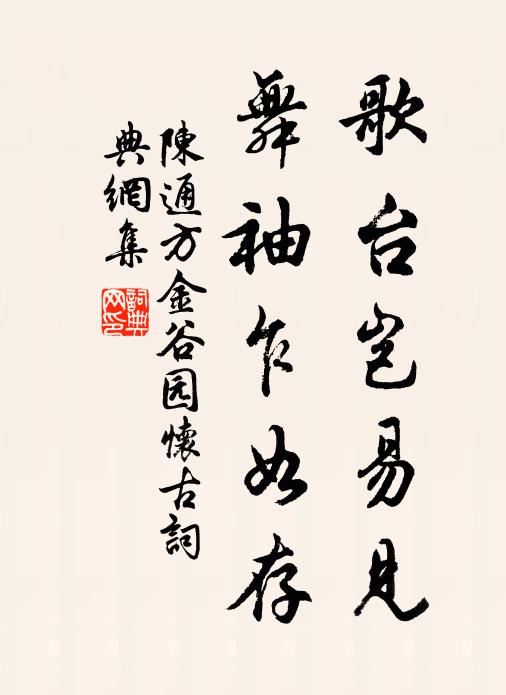 歌台岂易見
舞袖乍如存
陳通方金谷园懷古詞
典網集
詞典
网印